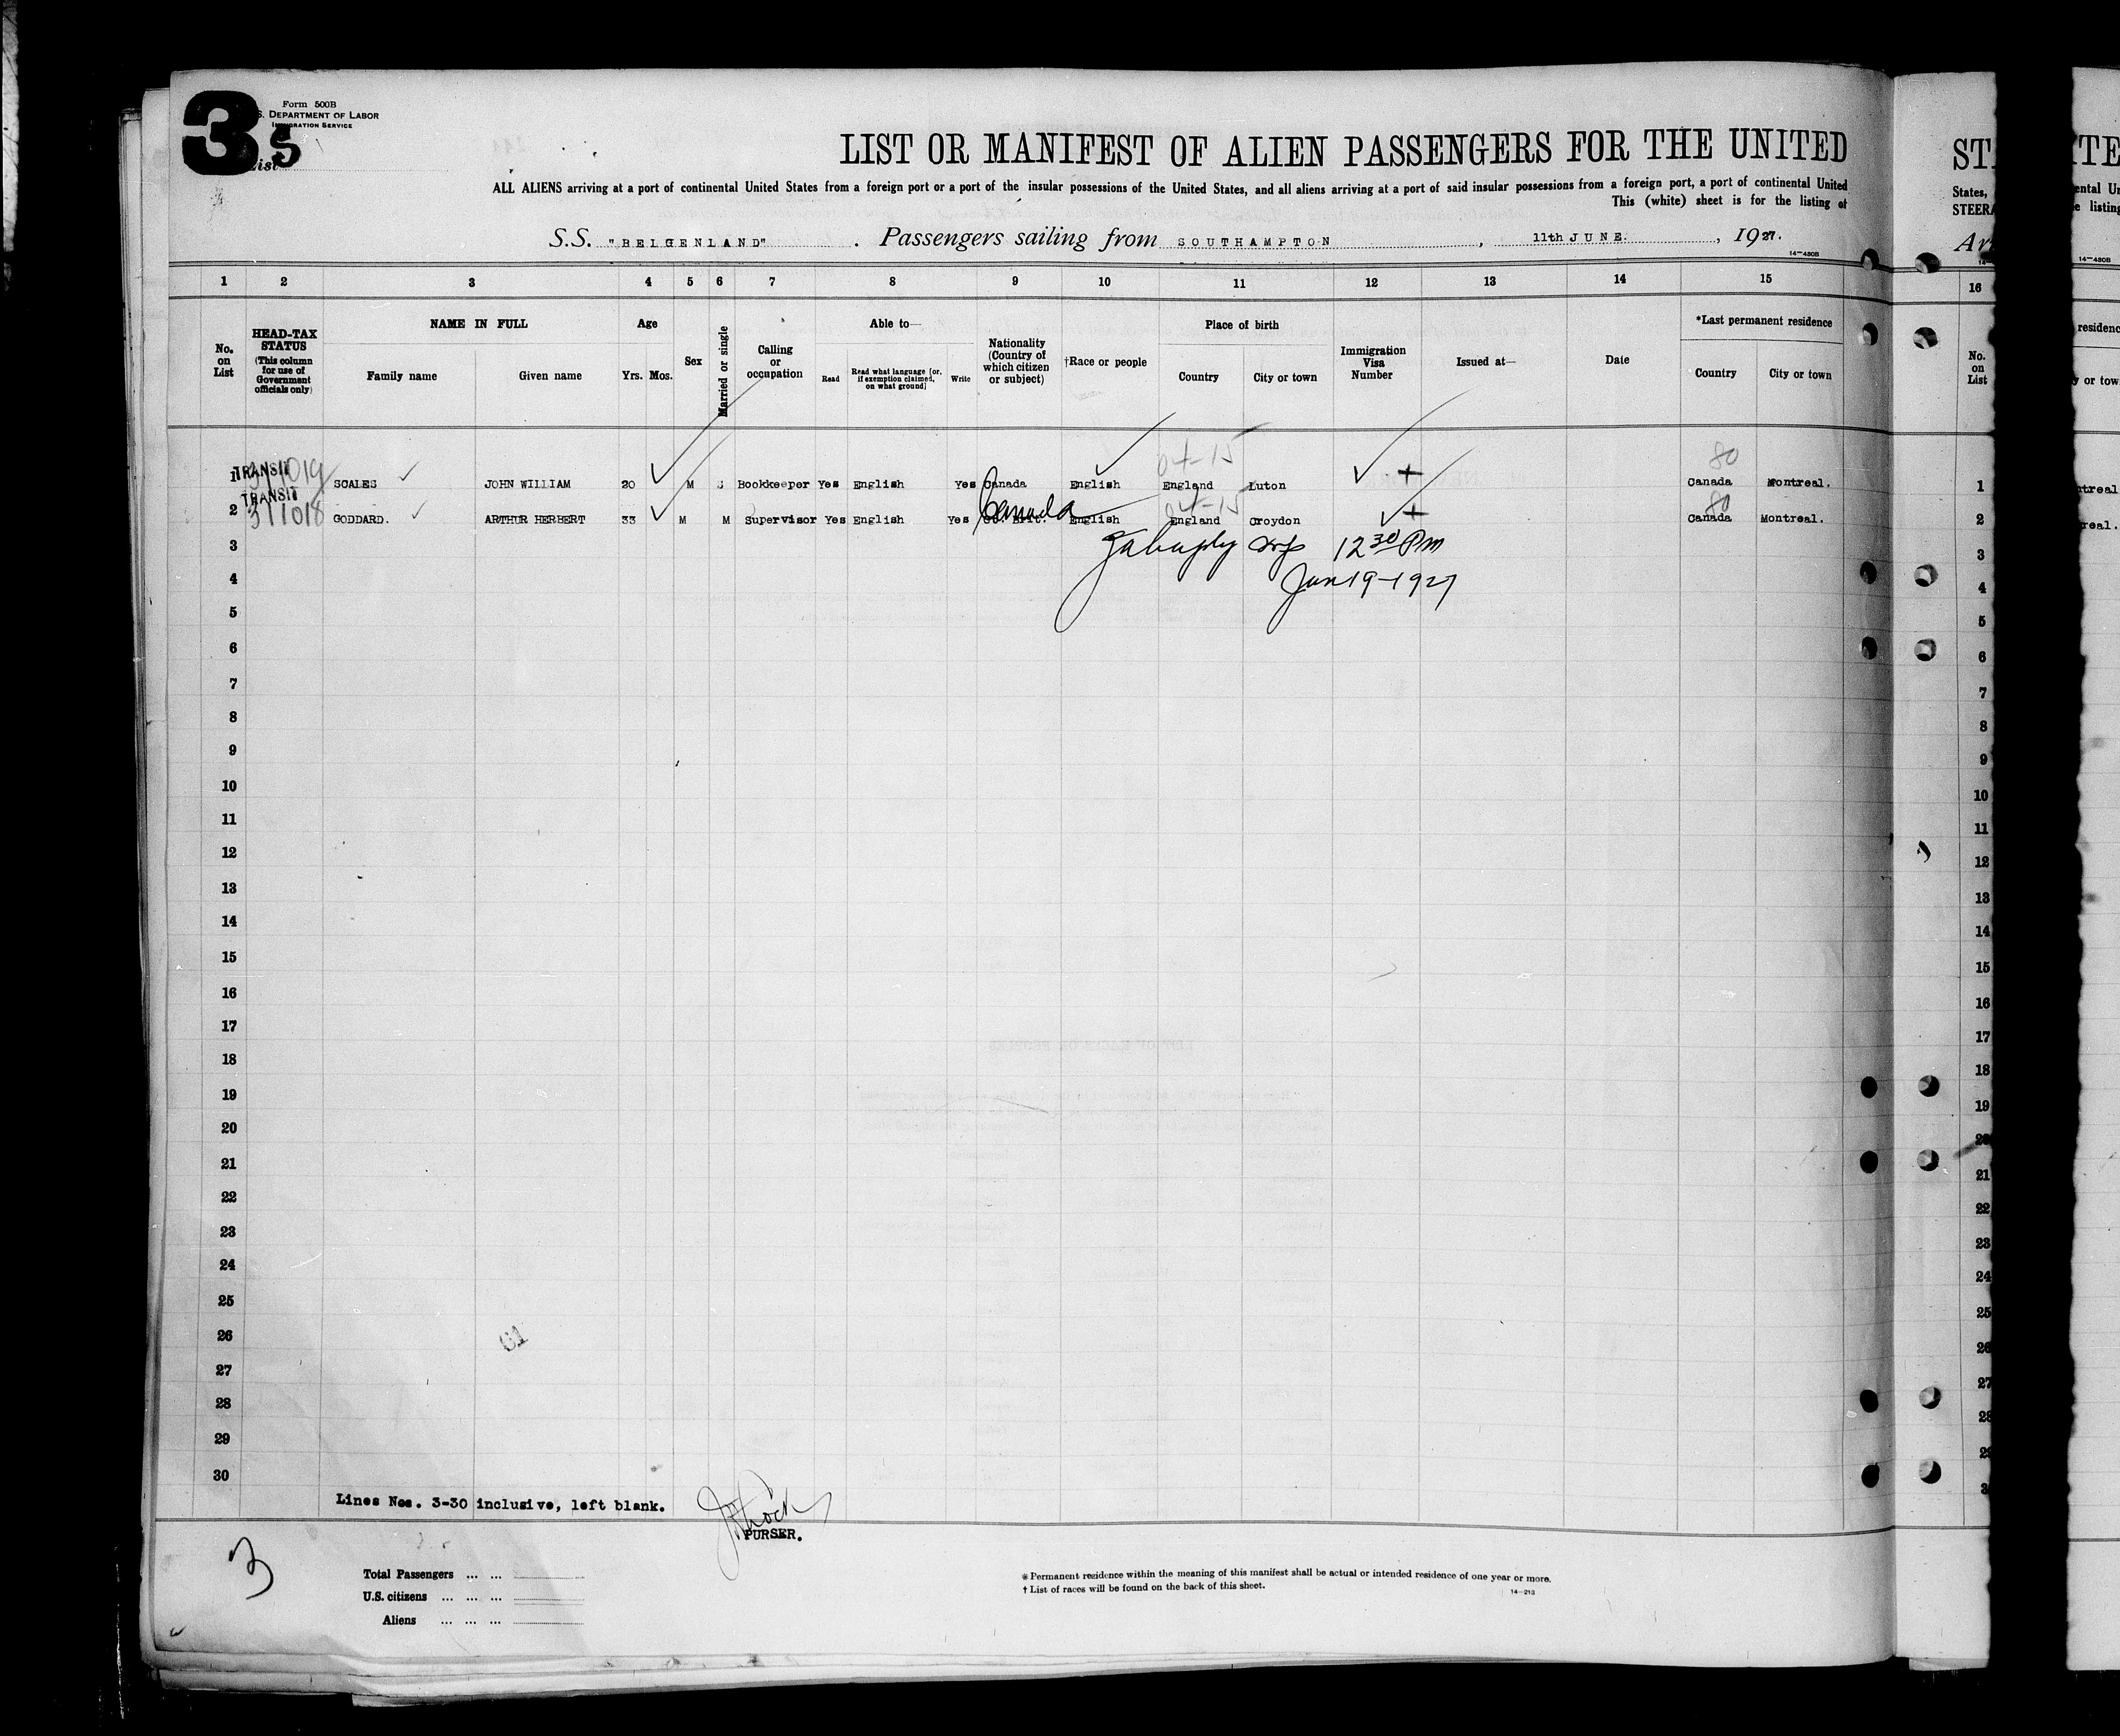 3 S
Form 500B
S. DEPARTMENT OF LABOR
IMMIGRATION SERVICE
List
LIST OR MANIFEST OF ALIEN PASSENGERS FOR THE UNITED
ALL ALIENS arriving at a port of continental United States from a foreign port or a port of the insular possessions of the United States, and all aliens arriving at a port of said insular possessions from a foreign port, a port of continental United
This (white) sheet is for the listing of
S.S. "BELGENLAND". Passengers sailing from SOUTHAMPTON, 11th JUNE., 1927.
14-480B
1 2 3 4 5 6 7 8 9 10 11 12 13 14 15
No. on List
HEAD-TAX STATUS (This column for use of Government officials only)
NAME IN FULL
Family name Given name
Age
Yrs. Mos.
Sex
Married or single
Calling or occupation
Able to—
Read Read what language [or, if exemption claimed, on what ground] Write
Nationality (Country of which citizen or subject)
†Race or people
Place of birth
Country City or town
Immigration Visa Number
Issued at—
Date
*Last permanent residence
Country City or town
04-15 80
1 TRANSIT 311019 SCALES JOHN WILLIAM 20 M S Bookkeeper Yes English Yes Canada English England Luton Canada Montreal.
Canada 04-15 80
2 TRANSIT 311018 GODDARD. ARTHUR HERBERT 33 M M Supervisor Yes English Yes Gt. Brit. English England Croydon Canada Montreal.
3 12 30 Pm
4 Jun 19-1927
5
6
7
8
9
10
11
12
13
14
15
16
17
18
19
20
21
22
23
24
25
26
27
28
29
30
Lines Nos. 3-30 inclusive, left blank.
PURSER.
3
Total Passengers ... ...
U.S. citizens ... ... ...
Aliens ... ... ...
* Permanent residence within the meaning of this manifest shall be actual or intended residence of one year or more.
† List of races will be found on the back of this sheet.
14-213
STA
States,
STEERA
Arr
16
No. on List
1
2
3
4
5
6
7
8
9
10
11
12
13
14
15
16
17
18
19
20
21
22
23
24
25
26
27
28
29
ental Un
e listing
14-480B
residence
y or town
ntreal
real.